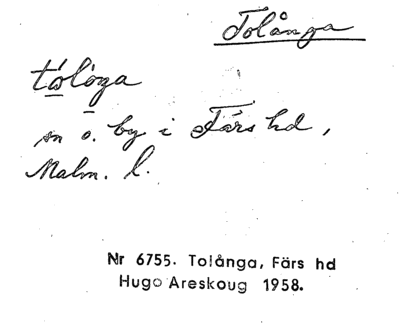 Tolånga
tólóŋa
sn o. by i Färs hd,
Malm. l.
Nr 6755. Tolånga, Färs hd
Hugo Areskoug 1958.